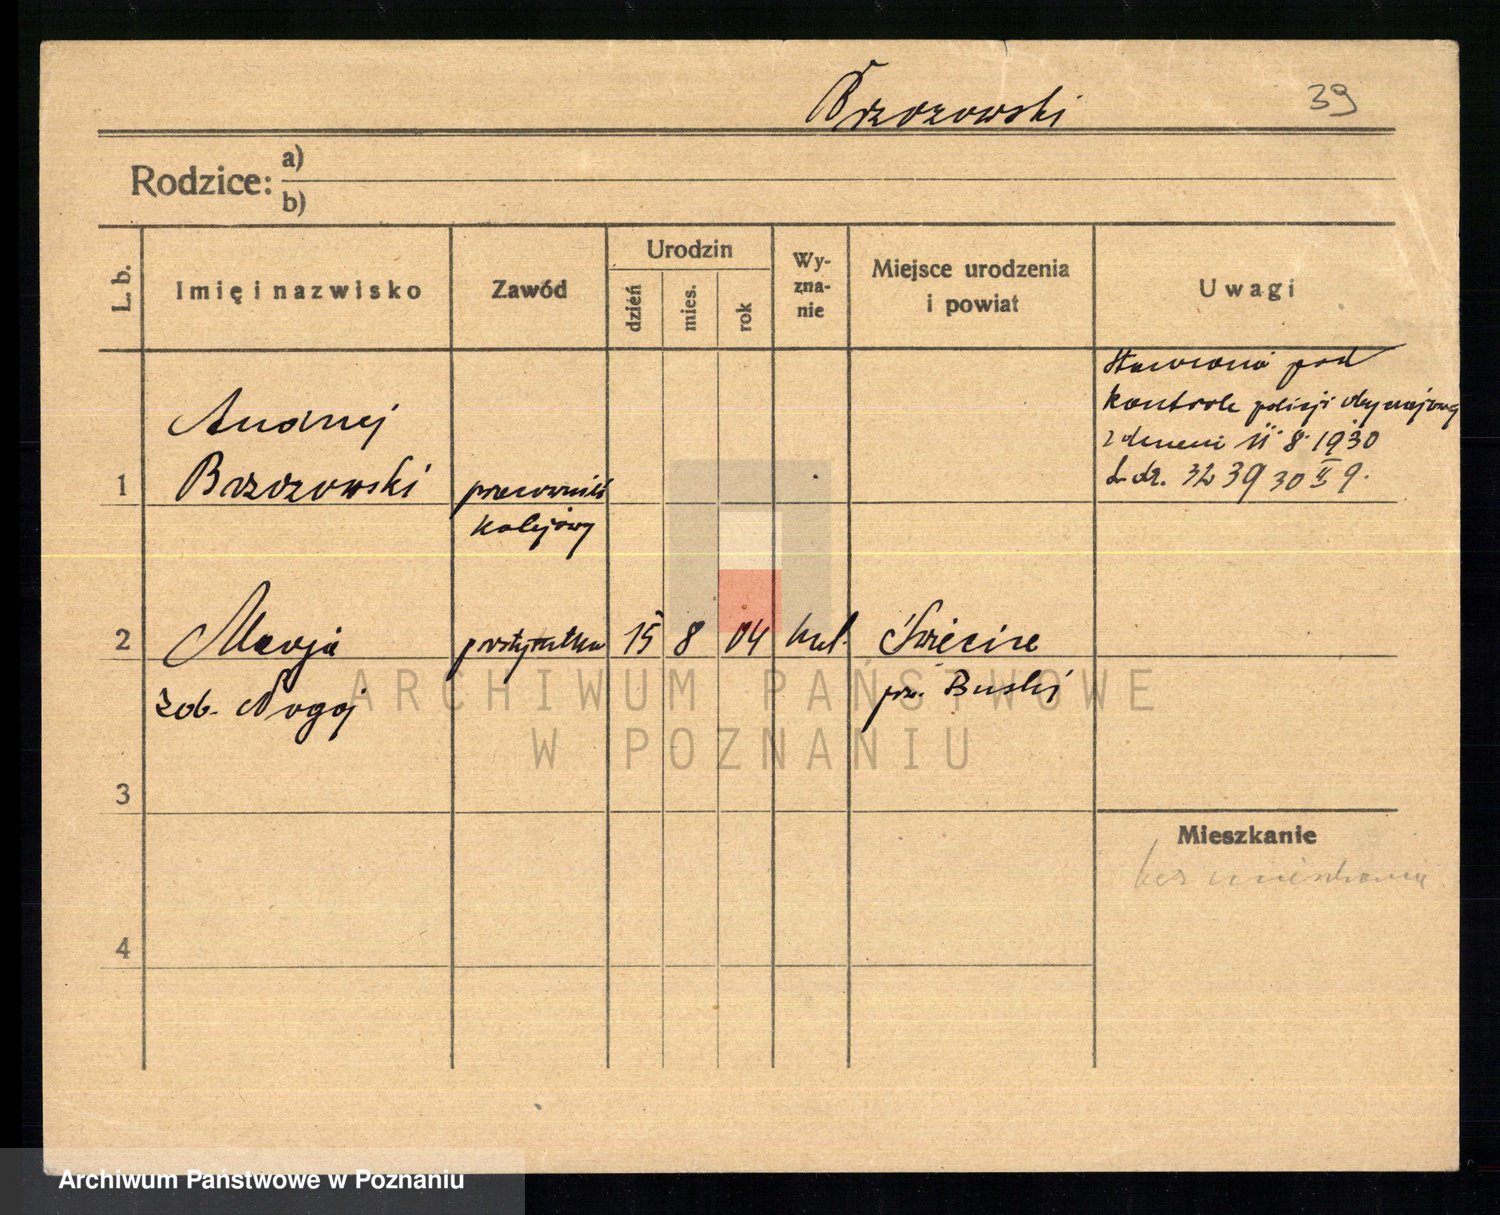 Brzozowski 39
Rodzice: a)
b)
L. b.
Imię i nazwisko
Zawód
Urodzin
dzień
mies.
rok
Wy-
zna-
nie
Miejsce urodzenia
i powiat
Uwagi
pod
kontrolę policji obyczajową
z dniem 11. 8. 1930
L. dz. 3239 30 II 9.
Andrzej
1 Brzozowski pracownik
kolejowy
2 Marja prostytutka 15 8 04 kat.
pow. Buski
zob. Nogaj
3
Mieszkanie
bez mieszkania
4
ARCHIWUM PAŃSTWOWE
W POZNANIU
Archiwum Państwowe w Poznaniu